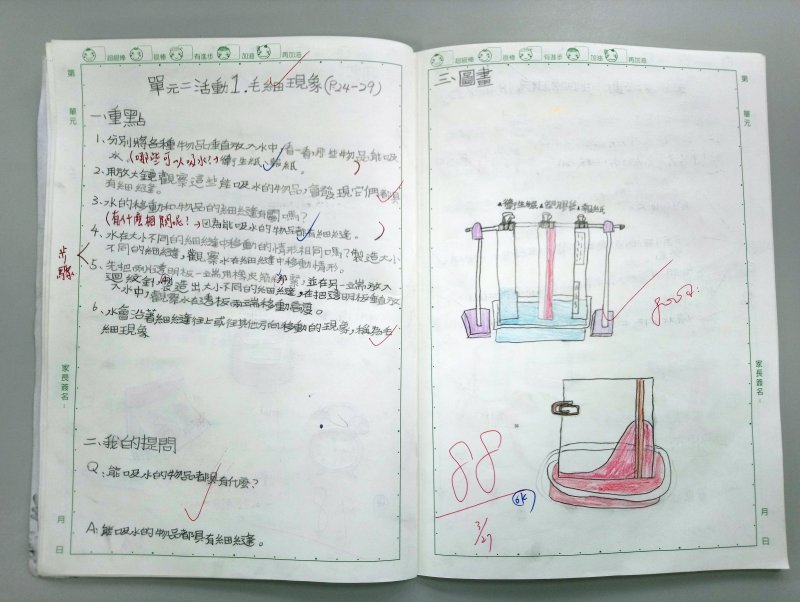 超級棒 很棒 有進步 加油 再加油
第
單元
單元二活動1.毛細現象(P.24-29)
一、重點
1、分別將各種物品垂直放入水中,看一看,那些物品能吸
水(哪些可以吸水?)衛生紙、報紙。
2、用放大鏡觀察這些能吸水的物品,會發現它們都具
有細縫。
3、水的移動和物品的細縫有關嗎?
(有什麼相關呢?)→因為能吸水的物品都有細縫。
4、水在大小不同的細縫中移動的情形相同嗎?製造大小
不同的細縫,觀察水在細縫中移動情形。
步驟
5、先把兩片透明板一端用橡皮筋綁緊,並在另一端放入
迴紋針,製造出大小不同的細縫,在把透明板垂直放
入水中,觀察水在透板兩端移動高度。
6、水會沿著細縫往上或往其他方向移動的現象,稱為毛
細現象
二、我的提問
Q:能吸水的物品都具有什麼?
A:能吸水的物品都具有細縫。
家長簽名:
月
日
超級棒 很棒 有進步 加油 再加油
第
單元
三、圖畫
衛生紙 塑膠尺 報紙
good!
88
OK
3/27
家長簽名:
月
日